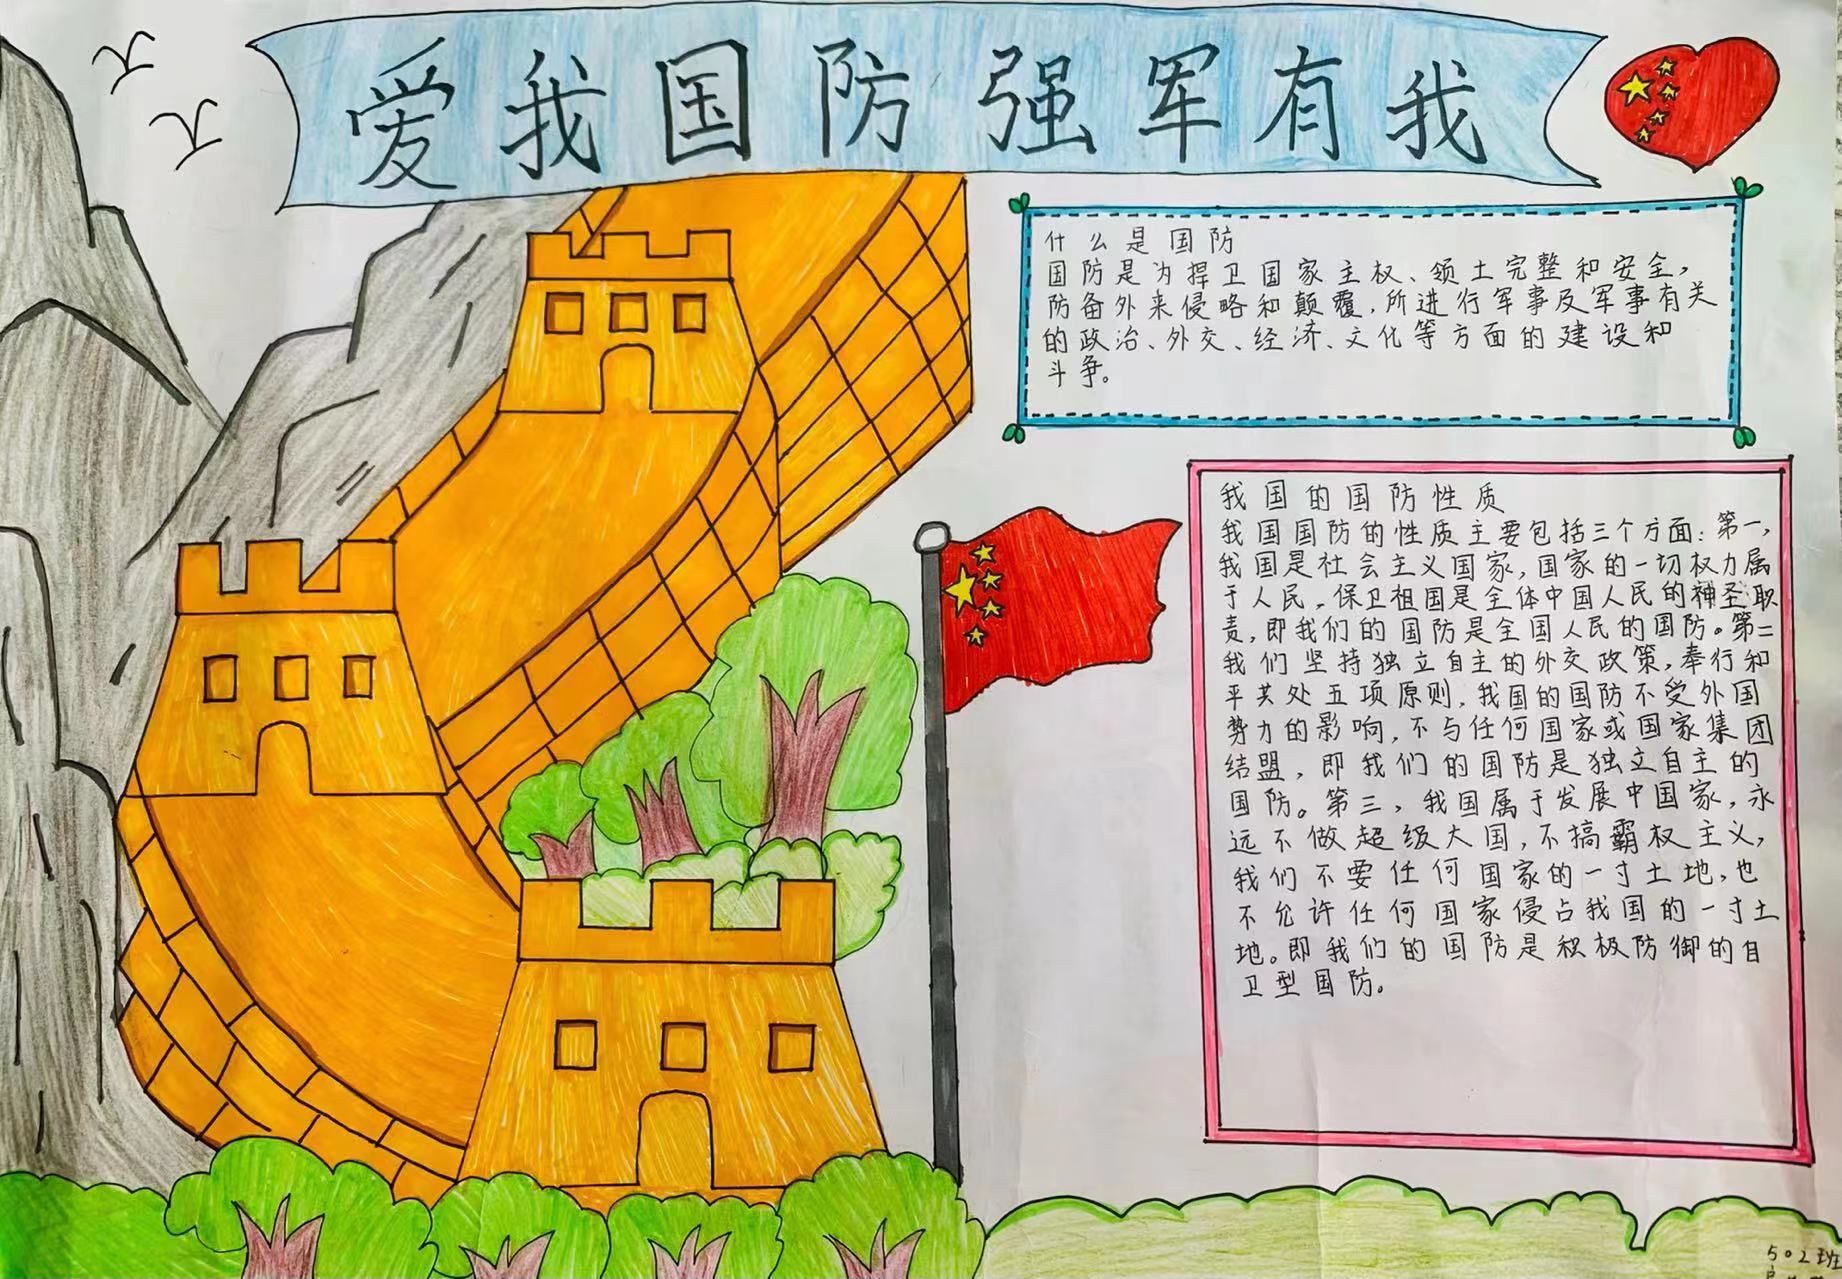 爱我国防强军有我
什么是国防
国防是为捍卫国家主权、领土完整和安全，
防备外来侵略和颠覆，所进行军事及军事有关
的政治、外交、经济、文化等方面的建设和
斗争。
我国的国防性质
我国国防的性质主要包括三个方面：第一，
我国是社会主义国家，国家的一切权力属
于人民，保卫祖国是全体中国人民的神圣职
责，即我们的国防是全国人民的国防。第二
我们坚持独立自主的外交政策，奉行和
平共处五项原则，我国的国防不受外国
势力的影响，不与任何国家或国家集团
结盟，即我们的国防是独立自主的
国防。第三，我国属于发展中国家，永
远不做超级大国，不搞霸权主义，
我们不要任何国家的一寸土地，也
不允许任何国家侵占我国的一寸土
地。即我们的国防是积极防御的自
卫型国防。
502班